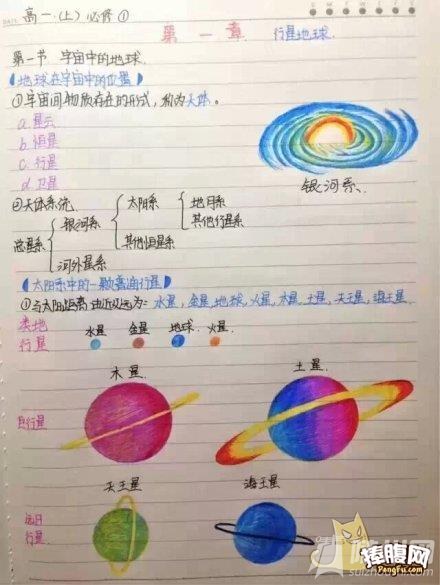 高一.(上) 必修①
第一章. 行星地球.
第一节 宇宙中的地球.
【地球在宇宙中的位置】
①宇宙间物质存在的形式，称为天体。
a. 星云
b. 恒星
c. 行星
d. 卫星
银河系
②天体系统
总星系
银河系
河外星系
太阳系
其他恒星系
地月系
其他行星系
【太阳系中的一颗普通行星】
①与太阳距离由近以远为：水星，金星，地球，火星，木星，土星，天王星，海王星.
类地行星
水星 金星 地球. 火星.
巨行星
木星
土星
远日行星
天王星
海王星
捧腹网
PengFu.com